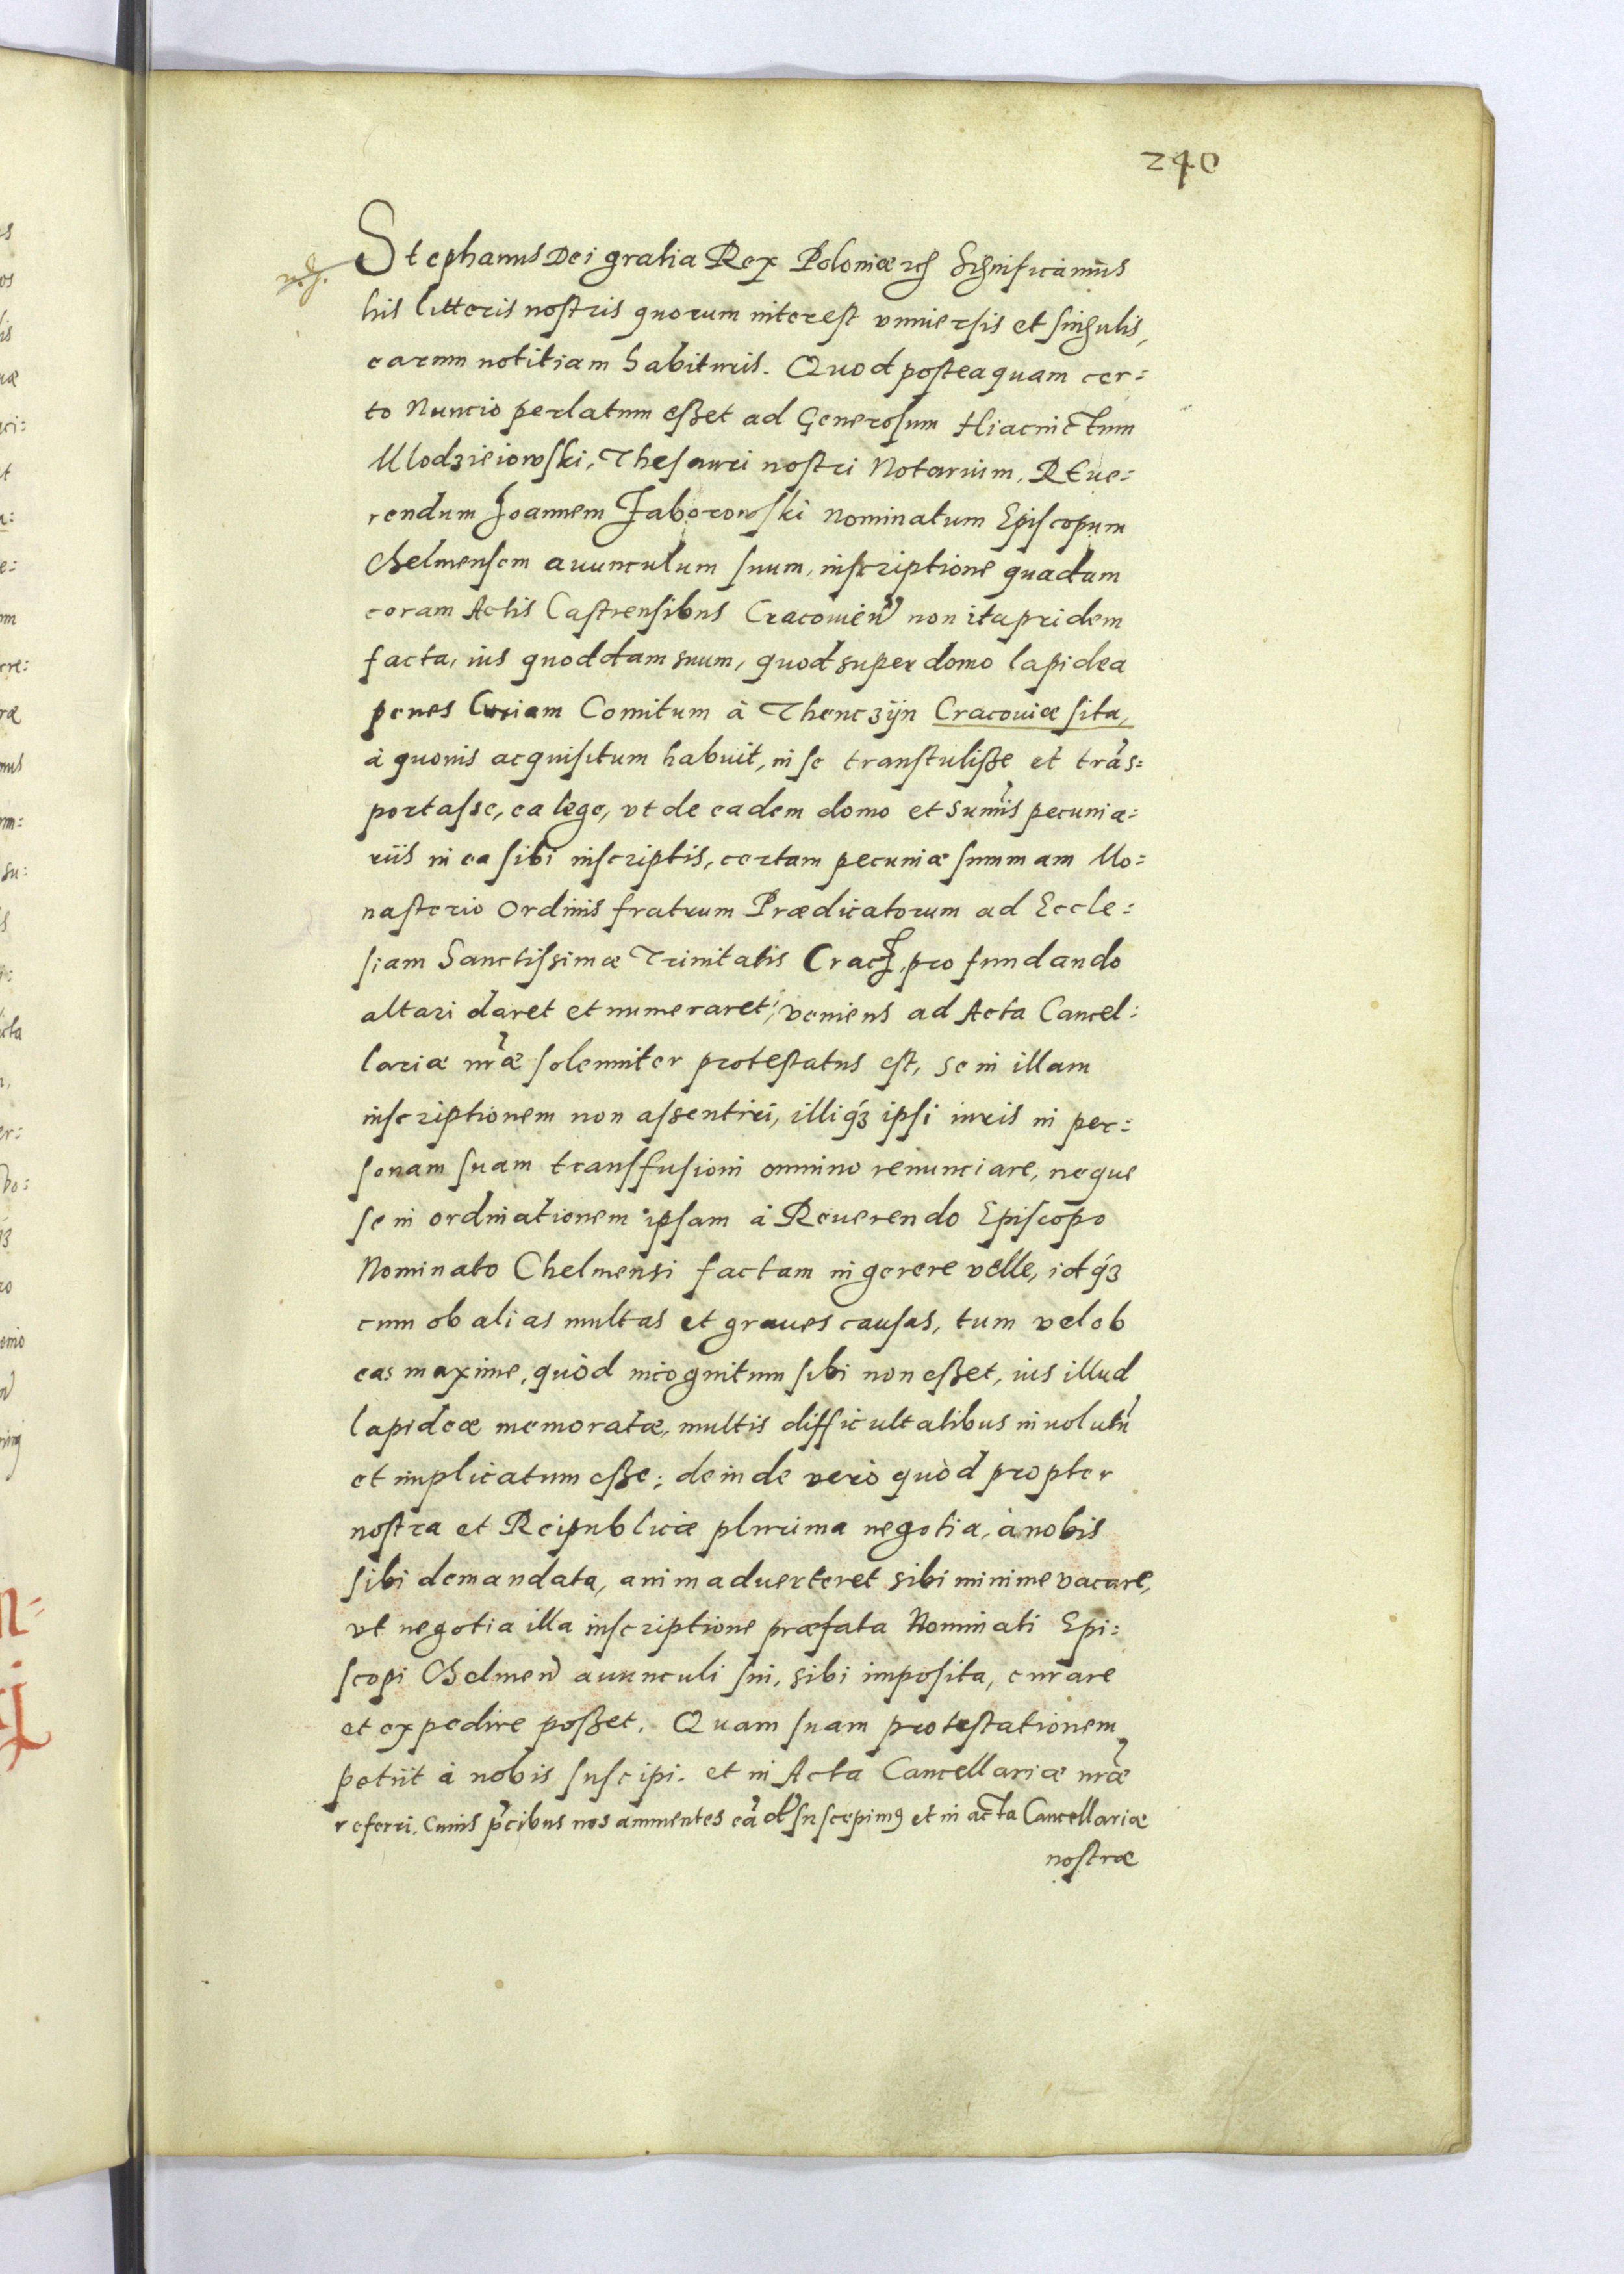 240
Stephanus Dei gratia Rex Poloniæ ꝛc Significamus
his litteris nostris quorum interest vniuersis et singulis,
earum notitiam habituris. Quod posteaquam cer:
to Nuncio perlatum esset ad Generosum Hiacinctum
Mlodzieiowski, Thesauri nostri Notarium, Reue:
rendum Joannem Zaborowski Nominatum Episcopum
Chelmensem auunculum suum, inscriptione quadam
coram Actis Castrensibus Cracouien̄ non ita pridem
facta, ius quoddam suum, quod super domo lapidea
penes Curiam Comitum à Thenczÿn Cracouiæ sita,
à quouis acquisitum habuit, in se transtulisse et trās:
portasse, ea lege, vt de eadem domo et sum̄is pecunia:
riis in ea sibi inscriptis, certam pecuniæ summam Mo:
nasterio Ordinis fratrum Prædicatorum ad Eccle:
siam Sanctissimæ Trinitatis Crac. pro fundando
altari daret et numeraret; veniens ad Acta Cancel:
lariæ nr̄æ solenniter protestatus est, se in illam
inscriptionem non assentiri, illiq́ꝫ ipsi iuris in per:
sonam suam transfusioni omnino renunciare, neque
se in ordinationem ipsam à Reuerendo Episcopo
Nominato Chelmensi factam ingerere velle, idq́ꝫ
cum ob alias multas et graues causas, tum vel ob
eas maxime, quòd incognitum sibi non esset, ius illud
lapideæ memoratæ, multis difficultatibus inuolutū
et implicatum esse; deinde verò quòd propter
nostra et Reipublicæ plurima negotia, à nobis
sibi demandata, animaduerteret sibi minime vacare,
vt negotia illa inscriptione præfata Nominati Epi:
scopi Chelmen̄ auunculi sui, sibi imposita, curare
et expedire posset. Quam suam protestationem
petiit à nobis suscipi. et in Acta Cancellariæ nr̄æ
referri. Cuius p̄cibus nos annuentes eā d suscepimꝰ et in acta Cancellariæ
nostræ